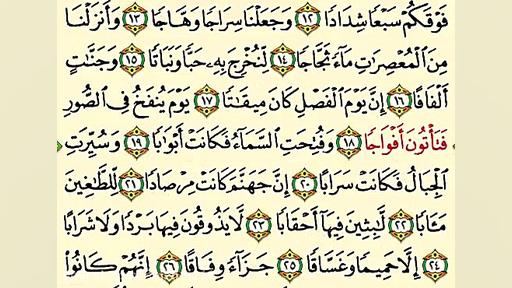 فَوْقَكُمْ سَبْعًا شِدَادًا ١٢ وَجَعَلْنَا سِرَاجًا وَهَّاجًا ١٣ وَأَنزَلْنَا
مِنَ الْمُعْصِرَٰتِ مَآءً ثَجَّاجًا ١٤ لِّنُخْرِجَ بِهِۦ حَبًّا وَنَبَاتًا ١٥ وَجَنَّٰتٍ
أَلْفَافًا ١٦ إِنَّ يَوْمَ الْفَصْلِ كَانَ مِيقَٰتًا ١٧ يَوْمَ يُنفَخُ فِى الصُّورِ
فَتَأْتُونَ أَفْوَاجًا ١٨ وَفُتِحَتِ السَّمَآءُ فَكَانَتْ أَبْوَٰبًا ١٩ وَسُيِّرَتِ
الْجِبَالُ فَكَانَتْ سَرَابًا ٢٠ إِنَّ جَهَنَّمَ كَانَتْ مِرْصَادًا ٢١ لِّلطَّٰغِينَ
مَـَٔابًا ٢٢ لَّٰبِثِينَ فِيهَآ أَحْقَابًا ٢٣ لَّا يَذُوقُونَ فِيهَا بَرْدًا وَلَا شَرَابًا
٢٤ إِلَّا حَمِيمًا وَغَسَّاقًا ٢٥ جَزَآءً وِفَاقًا ٢٦ إِنَّهُمْ كَانُوا۟